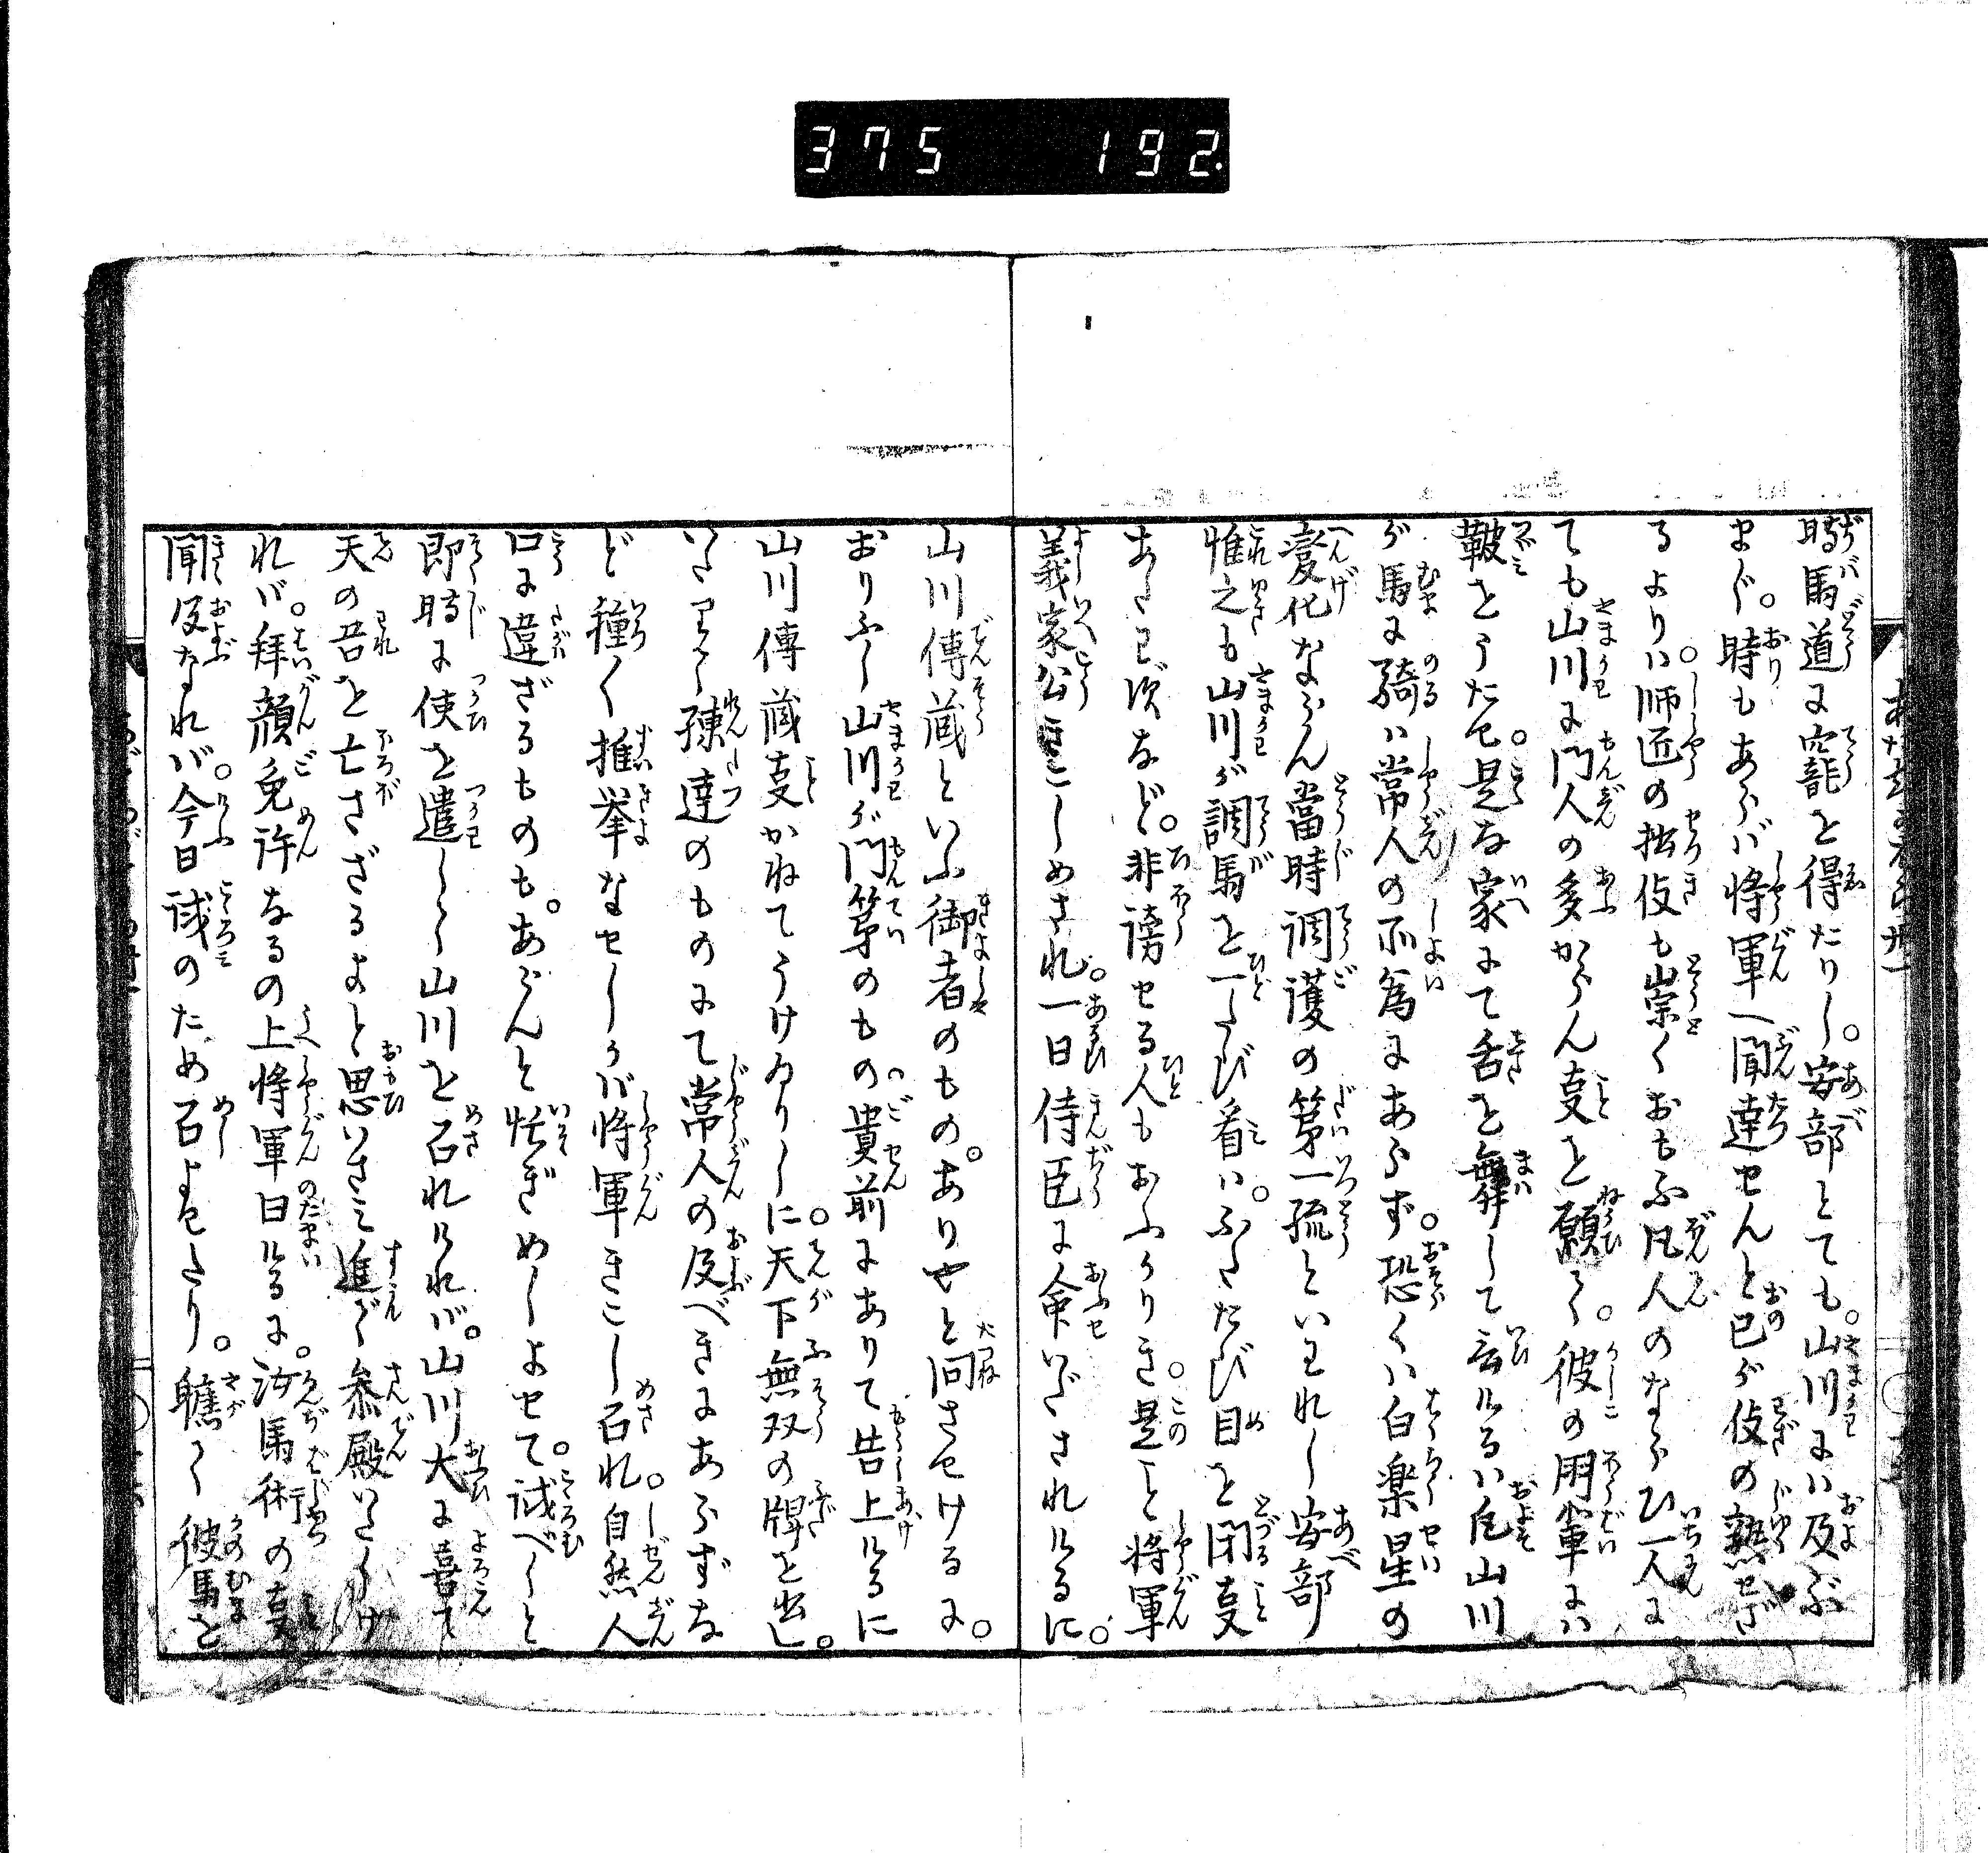 375 192
時馬道に寵を得たりし。安部とても。山川には及ぶ
まじ。時もあらバ将軍へ聞達せんと己が伎の熟せざ
るよりハ。師匠の拙伎も崇くおもふ凡人のならひ一人に
ても山川に門人の多からん事を願ふて。彼の朋輩にハ
鞁をうたせ。是な家にて舌を舞して云けるハ凡山川
が馬に騎ハ常人の所為にあらず。恐くハ白楽星の
変化ならん當時調護の第一流といわれし安部
惟之も山川が調馬を一たび看ハ。ふたたび目を閉事
あたわ次など。非謗せる人もおふかりき。是こと将軍
義家公きこしめされ。一日侍臣に命いださられけるに。
山川傳蔵といふ御者のもの。ありやと問させけるに。
おりふし山川が門第のもの貴前にありて告上けるに
山川傳蔵事かねてうけゐりしに。天下無双の牌を出し。
いたつて練達のものにて常人の及べきにあらずな
ど種〱推挙なせしかバ将軍きこし召れ。自然人
口に違ざるものも。あらんと怅ぎめしよせて。試べしと
即時に使を遣しして山川を召れけれバ。山川大に喜て
天の吾を亡さざるよと思いさミ進で参殿いたしけ
れバ。拝顔免許なるの上将軍曰けるに。汝馬術の事
聞及なれバ。今日試のため召よせたり。 彼馬を